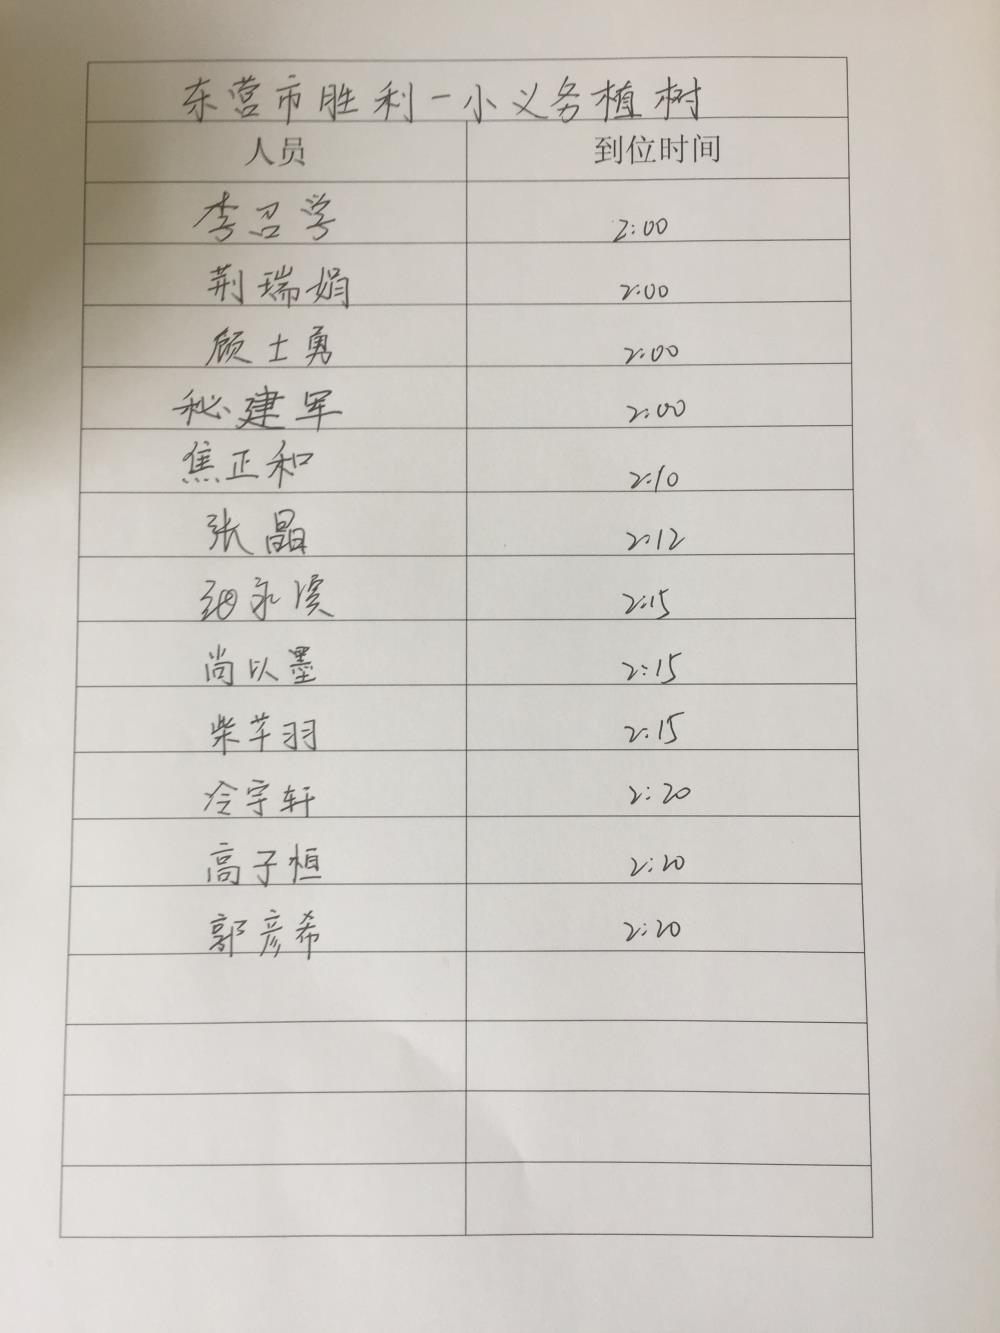 东营市胜利一小义务植树
人员 到位时间
李召学 2:00
荆瑞娟 2:00
顾士勇 2:00
秘建军 2:00
焦正和 2:10
张晶 2:12
永溪 2:15
尚以墨 2:15
柴芊羽 2:15
冷宇轩 2:20
高子恒 2:20
郭彦希 2:20